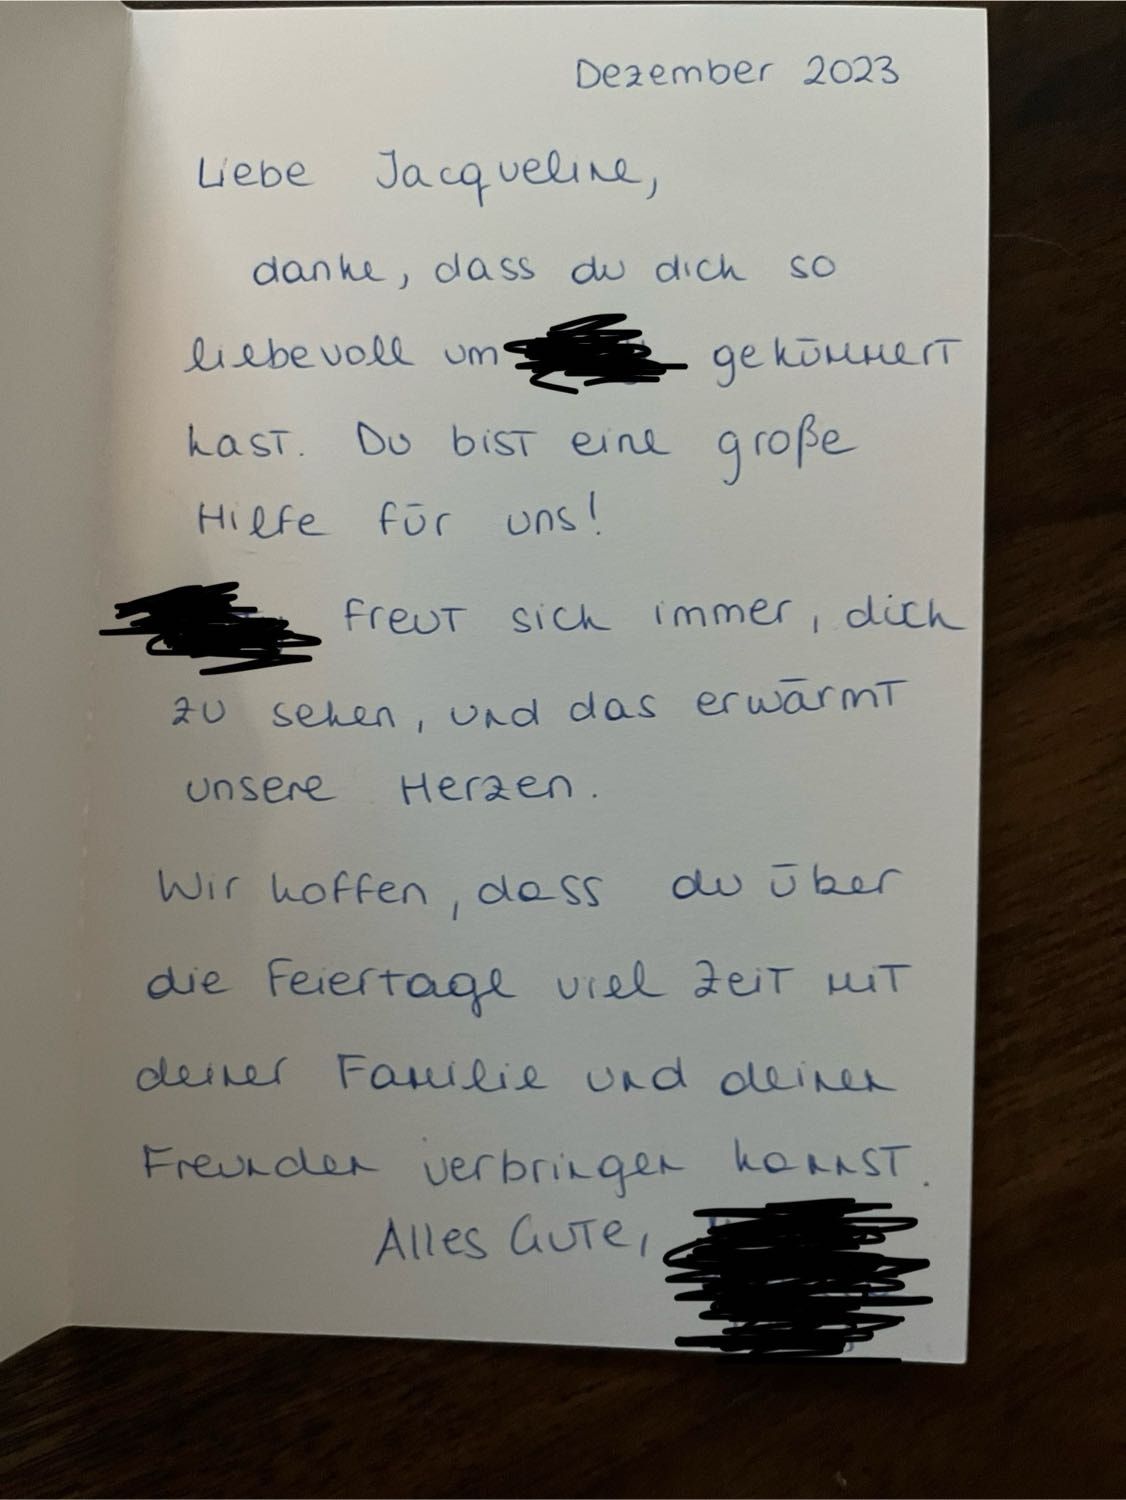 Dezember 2023
Liebe Jacqueline,
danke, dass du dich so
liebevoll um gekümmert
hast. Du bist eine große
Hilfe für uns!
freut sich immer, dich
zu sehen, und das erwärmt
unsere Herzen.
Wir hoffen, dass du über
die Feiertage viel Zeit mit
deiner Familie und deinen
Freunden verbringen kannst.
Alles Gute,